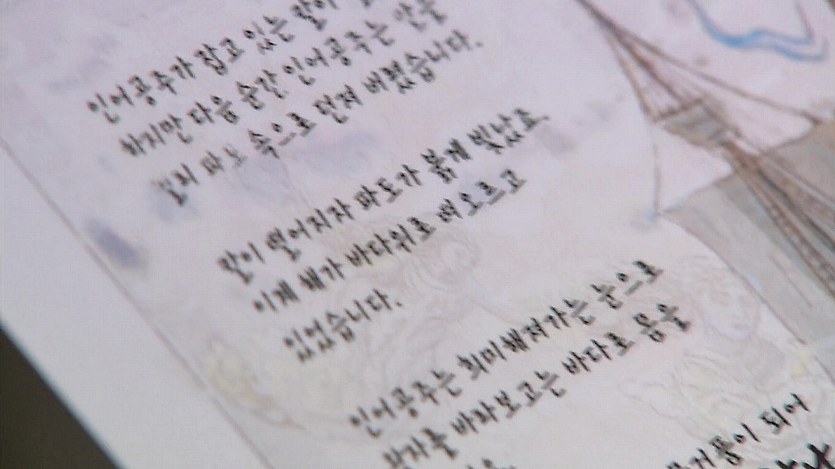 인어공주가 잡고 있는 칼이
하지만 다음 순간 인어공주는 칼을
멀리 파도 속으로 던져 버렸습니다.
칼이 떨어지자 파도가 붉게 빛났죠.
이제 해가 바다위로 떠오르고
있었습니다.
인어공주는 희미해져가는 눈으로
왕자를 바라보고는 바다로 몸을
물거품이 되어